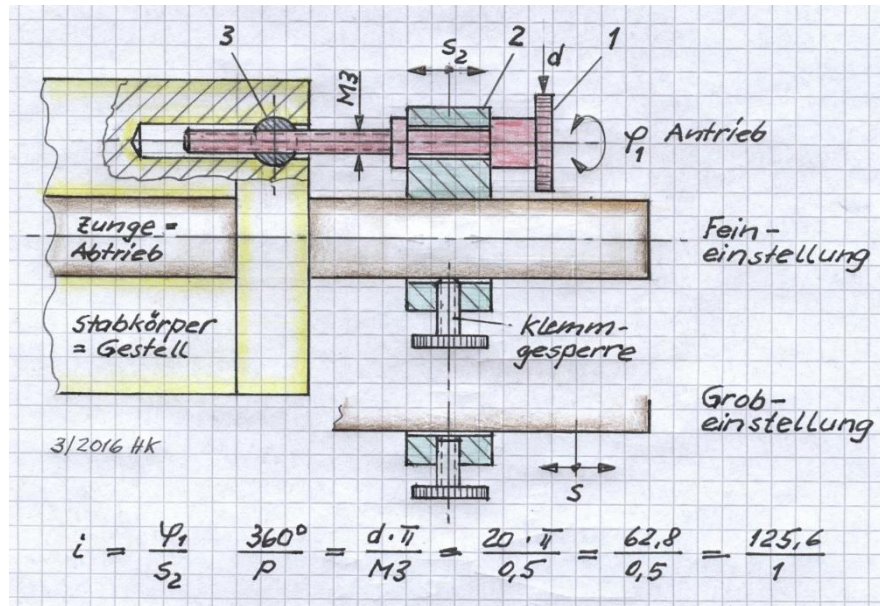 3
S₂
2
d
1
M3
φ₁ Antrieb
Zunge =
Abtrieb
Fein-
einstellung
Stabkörper
= Gestell
Klemm-
gesperre
Grob-
einstellung
3/2016 HK
S
i = φ₁/S₂ 360°/P = d·π/M3 = 20·π/0,5 = 62,8/0,5 = 125,6/1